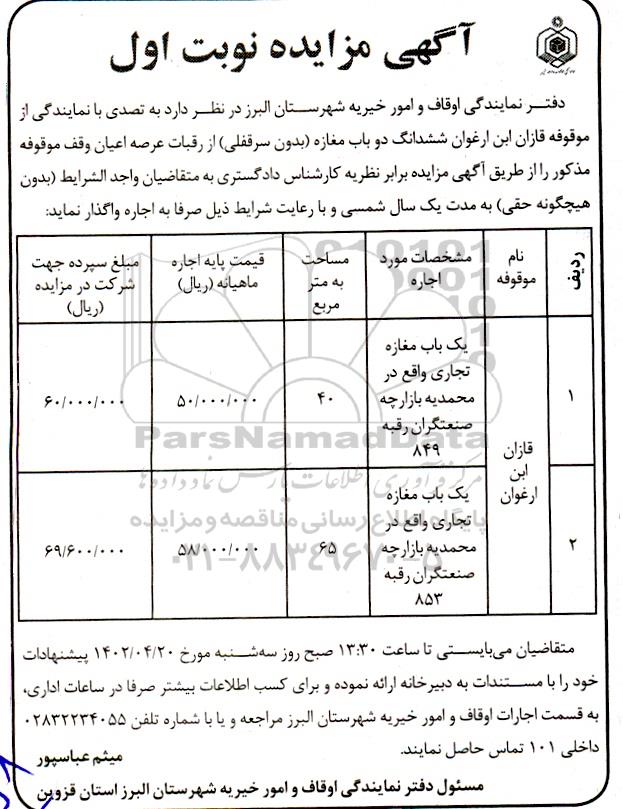 آگهی مزایده نوبت اول
دفتر نمایندگی اوقاف و امور خیریه شهرستان البرز در نظر دارد به تصدی با نمایندگی از
موقوفه قازان ابن ارغوان ششدانگ دو باب مغازه (بدون سرقفلی) از رقبات عرصه اعیان وقف موقوفه
مذکور را از طریق آگهی مزایده برابر نظریه کارشناس دادگستری به متقاضیان واجد الشرایط (بدون
هیچگونه حقی) به مدت یک سال شمسی و با رعایت شرایط ذیل صرفا به اجاره واگذار نماید:
ردیف
نام
موقوفه
مشخصات مورد
اجاره
مساحت
به متر
مربع
قیمت پایه اجاره
ماهیانه (ریال)
مبلغ سپرده جهت
شرکت در مزایده
(ریال)
۱
قازان
ابن
ارغوان
یک باب مغازه
تجاری واقع در
محمدیه بازارچه
صنعتگران رقبه
۸۴۹
۴۰
۵۰/۰۰۰/۰۰۰
۶۰/۰۰۰/۰۰۰
۲
یک باب مغازه
تجاری واقع در
محمدیه بازارچه
صنعتگران رقبه
۸۵۳
۶۵
۵۸/۰۰۰/۰۰۰
۶۹/۶۰۰/۰۰۰
ParsNamadData
مرکز فرآوری اطلاعات پارس نماد داده ها
پایگاه اطلاع رسانی مناقصه و مزایده
۰۲۱-۸۸۳۴۹۶۷۰-۵
متقاضیان می‌بایستی تا ساعت ۱۳:۳۰ صبح روز سه‌شنبه مورخ ۱۴۰۲/۰۴/۲۰ پیشنهادات
خود را با مستندات به دبیرخانه ارائه نموده و برای کسب اطلاعات بیشتر صرفا در ساعات اداری،
به قسمت اجارات اوقاف و امور خیریه شهرستان البرز مراجعه و یا با شماره تلفن ۰۲۸۳۲۲۳۴۰۵۵
داخلی ۱۰۱ تماس حاصل نمایند.
میثم عباسپور
مسئول دفتر نمایندگی اوقاف و امور خیریه شهرستان البرز استان قزوین